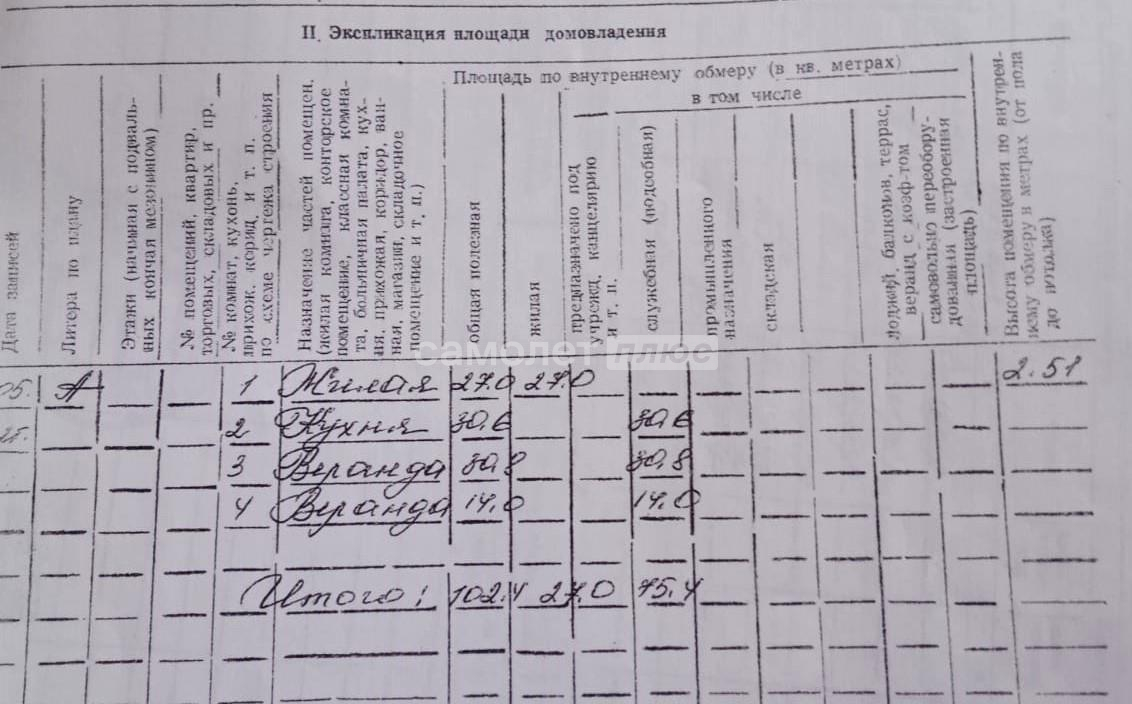 II. Экспликация площади домовладения
Дата записей
Литера по плану
Этажи (начиная с подваль-
ных кончая мезонином)
№ помещений, квартир,
торговых, складовых и пр.
№ комнат, кухонь,
прихож. корид и т. п.
по схеме чертежа строения
Назначение частей помещен.
(жилая комната, конторское
помещение, классная комна-
та, больничная палата, кух-
ня, прихожая, коридор, ван-
ная, магазин, складочное
помещение и т. п.)
Площадь по внутреннему обмеру (в кв. метрах)
общая полезная
в том числе
жилая
предназначено под
учрежд. канцелярию
и т. п.
служебная (подсобная)
промышленного
назначения
складская
лоджий, балконов, террас,
веранд с коэф-том
самовольно переобору-
дованная (застроенная
площадь)
Высота помещения по внутрен-
нему обмеру в метрах (от пола
до потолка)
самолет плюс
05. А 1 Жилая 27.0 27.0 2.51
2 Кухня 30.6 30.6
3 Веранда 30.8 30.8
4 Веранда 14.0 14.0
Итого: 102.4 27.0 75.4